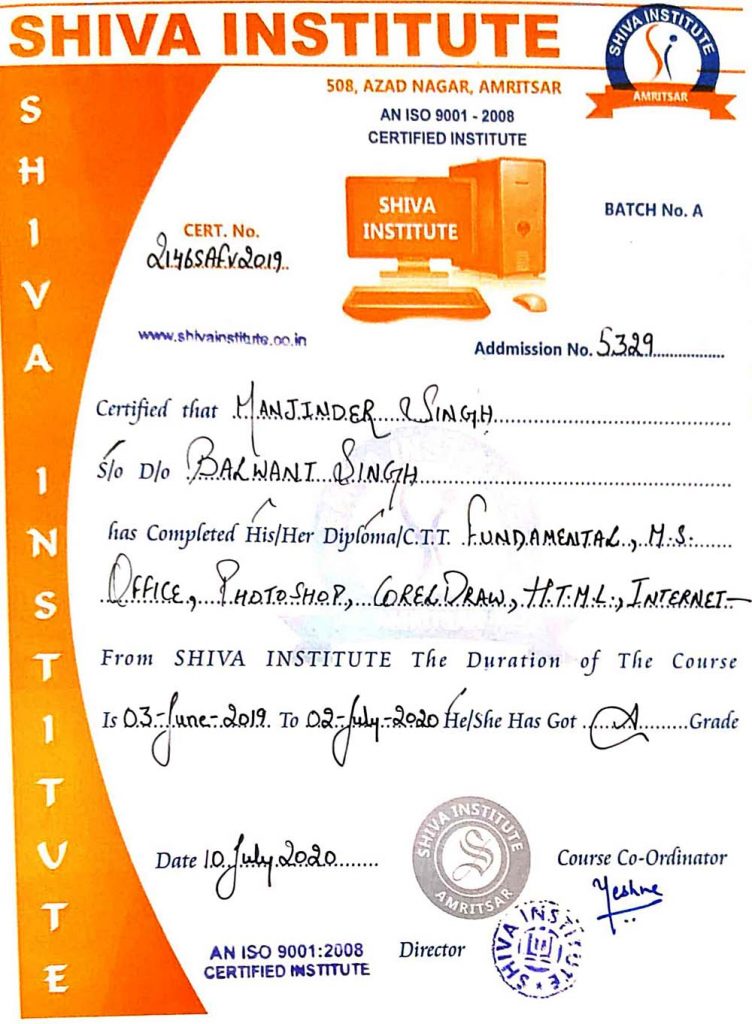 SHIVA INSTITUTE
SHIVA INSTITUTE
AMRITSAR
508, AZAD NAGAR, AMRITSAR
AN ISO 9001 - 2008
CERTIFIED INSTITUTE
SHIVA INSTITUTE
SHIVA
INSTITUTE
BATCH No. A
CERT. No.
2146SAFV2019
www.shivainstitute.co.in
Addmission No. 5329
Certified that MANJINDER SINGH
S/o D/o BALWANT SINGH
has Completed His/Her Diploma/C.T.T. FUNDAMENTAL, M.S.
OFFICE, PHOTOSHOP, COREL DRAW, H.T.M.L., INTERNET
From SHIVA INSTITUTE The Duration of The Course
Is 03-June-2019 To 02-July-2020 He/She Has Got A Grade
SHIVA INSTITUTE
AMRITSAR
Date 10 July 2020
Course Co-Ordinator
Director
SHIVA INSTITUTE
AN ISO 9001:2008
CERTIFIED INSTITUTE